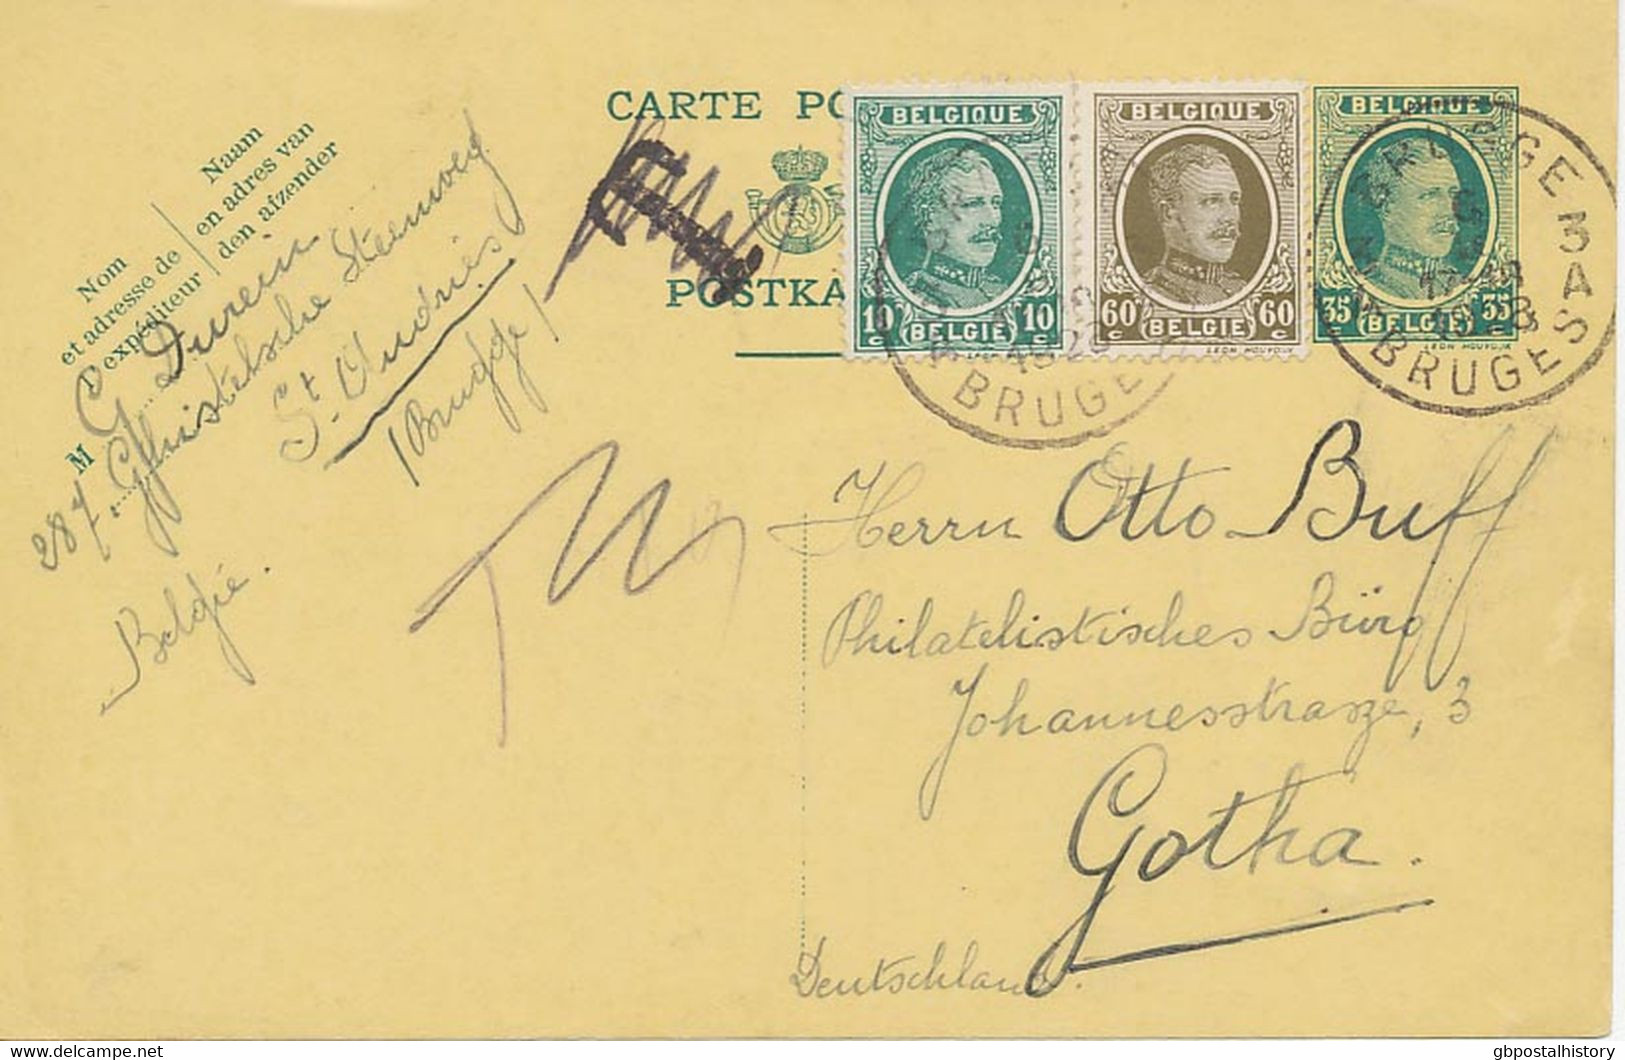 CARTE PO
POSTKA
BELGIQUE
10 10
BELGIE
BELGIQUE
60 60
BELGIE
LEON HOUYOUX
BELGIQUE
35 35
BELGIE
LEON HOUYOUX
BRUGGE 3A
1928
BRUGES
BRUGE
Nom
et adresse de
l'expéditeur
Naam
en adres van
den afzender
M
G Durein
287. Ghistelsche Steenweg
St. Andries
(Brugge)
België.
T
T
Herrn Otto Buff
Philatelistisches Büro
Johannesstrasze, 3
Gotha.
Deutschland.
gbpostalhistory